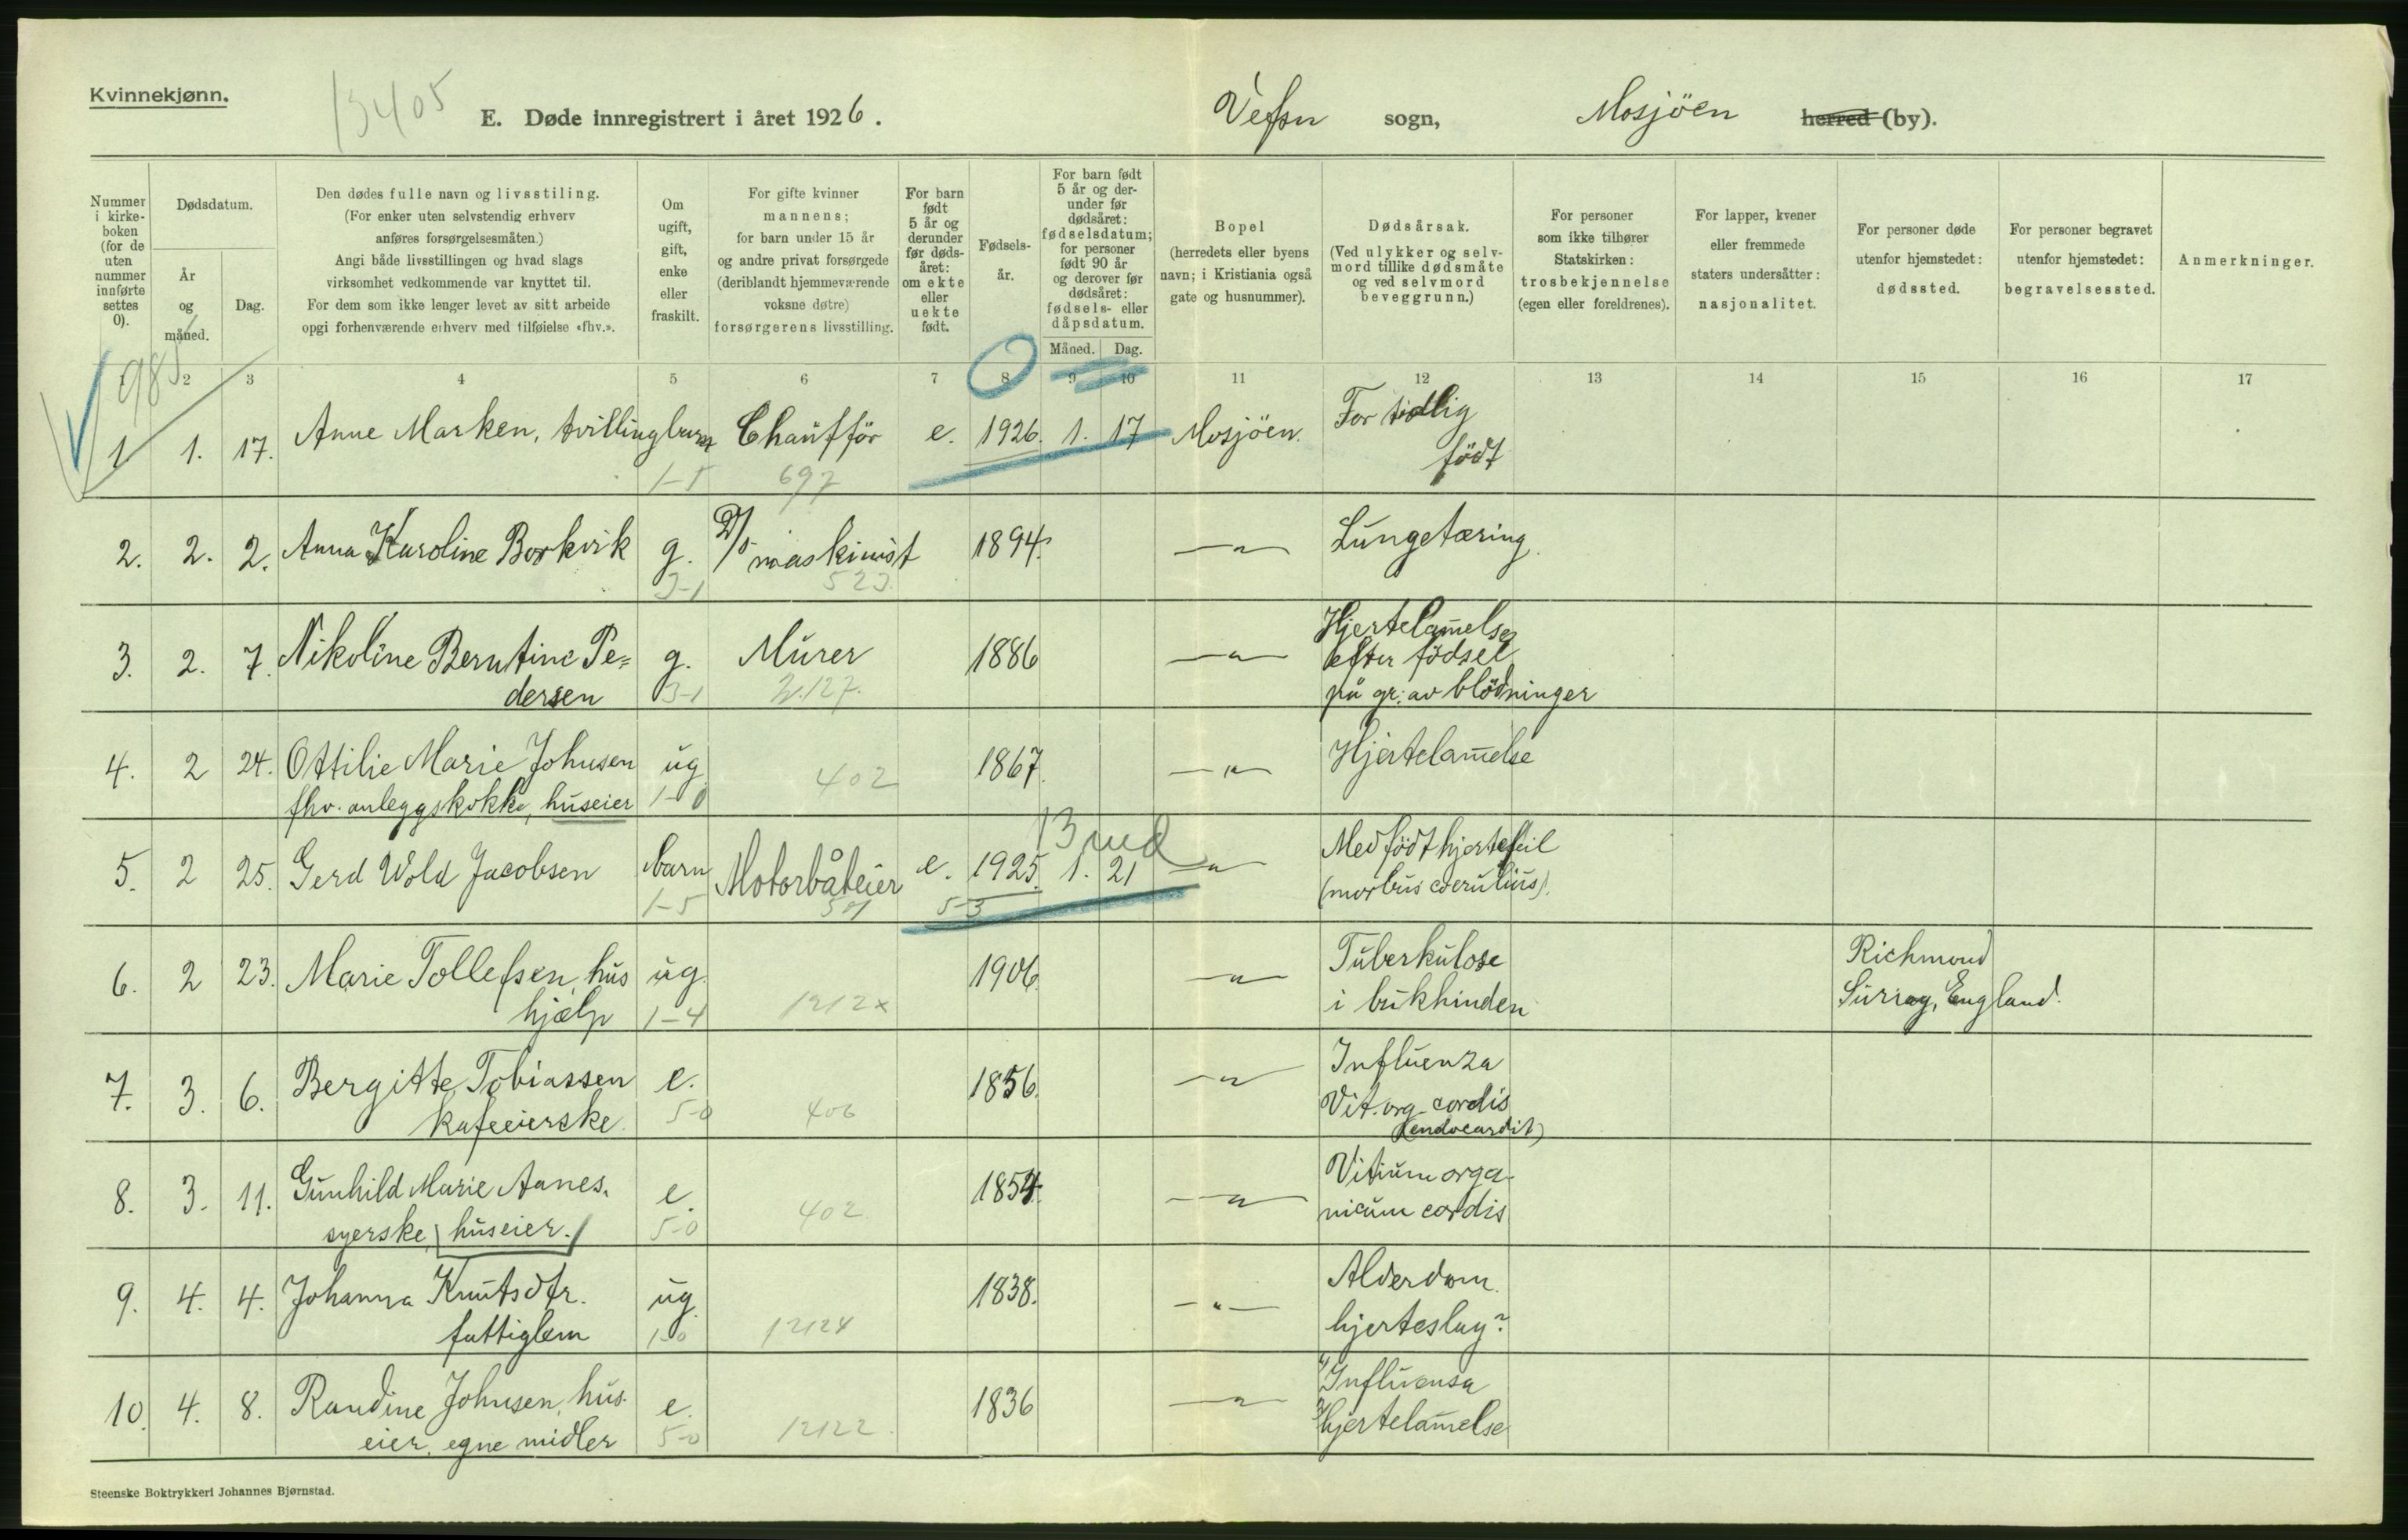 Kvinnekjønn.
13405
E. Døde innregistrert i året 1926.
Vefsn sogn, Mosjöen herred (by).
Nummer i kirke-boken (for de uten nummer innførte settes 0).
Dødsdatum.
År og måned.
Dag.
Den dødes fulle navn og livsstiling.
(For enker uten selvstendig erhverv
anføres forsørgelsesmåten.)
Angi både livsstillingen og hvad slags
virksomhet vedkommende var knyttet til.
For dem som ikke lenger levet av sitt arbeide
opgi forhenværende erhverv med tilføielse «fhv.».
Om ugift, gift, enke eller fraskilt.
For gifte kvinner
mannens;
for barn under 15 år
og andre privat forsørgede
(deriblandt hjemmeværende
voksne døtre)
forsørgerens livsstilling.
For barn født 5 år og derunder før døds-året: om ekte eller uekte født.
Fødsels-år.
For barn født 5 år og der-under før dødsåret: fødselsdatum; for personer født 90 år og derover før dødsåret: fødsels- eller dåpsdatum.
Måned. Dag.
Bopel
(herredets eller byens
navn; i Kristiania også
gate og husnummer).
Dødsårsak.
(Ved ulykker og selv-
mord tillike dødsmåte
og ved selvmord
beveggrunn.)
For personer
som ikke tilhører
Statskirken:
trosbekjennelse
(egen eller foreldrenes).
For lapper, kvener
eller fremmede
staters undersåtter:
nasjonalitet.
For personer døde
utenfor hjemstedet:
dødssted.
For personer begravet
utenfor hjemstedet:
begravelsessted.
Anmerkninger.
1 2 3 4 5 6 7 8 9 10 11 12 13 14 15 16 17
1 1. 17. Anne Marken, tvillingbarn Chaufför e. 1926. 1. 17 Mosjöen. For tidlig
født
1-5 697
2. 2. 2. Anna Karoline Borkvik g. D/S maskinist 1894. —"— Lungetæring.
3-1 523
3. 2. 7. Nikoline Berntine Pe= g. Murer 1886 —"— Hjertelam̄else
efter födsel
dersen 3-1 2.127. på gr. av blödninger
4. 2 24. Ottilie Marie Johnsen ug 1867. —"— Hjertelam̄else
fhv. anleggskokke, huseier 1-0 402
5. 2 25. Gerd Wold Jacobsen barn Motorbåteier e. 1925. 1. 21 —"— Medfödt hjertefeil
(morbus coerulius).
1-5 501 5-3
6. 2 23. Marie Tollefsen, hus ug. 1906. —"— Tuberkulose Richmond
hjælp 1-4 1212x i bukhinden Surray, England.
7. 3. 6. Bergitte Tobiassen e. 1856. —"— Influenza
kafeeierske. 5-0 406 Vit. org. cordis
(endocardit)
8. 3. 11. Gunhild Marie Aanes. e. 1854. —"— Vitium orga-
syerske, huseier. 5-0 402 nicum cordis
9. 4. 4. Johanna Knutsdtr. ug. 1838. —"— Alderdom.
fattiglem 1-0 12124 hjerteslag?
10. 4. 8. Randine Johnsen, hus- e. 1836 —"— Influensa
eier, egne midler 5-0 12122 Hjertelam̄else
Steenske Boktrykkeri Johannes Bjørnstad.